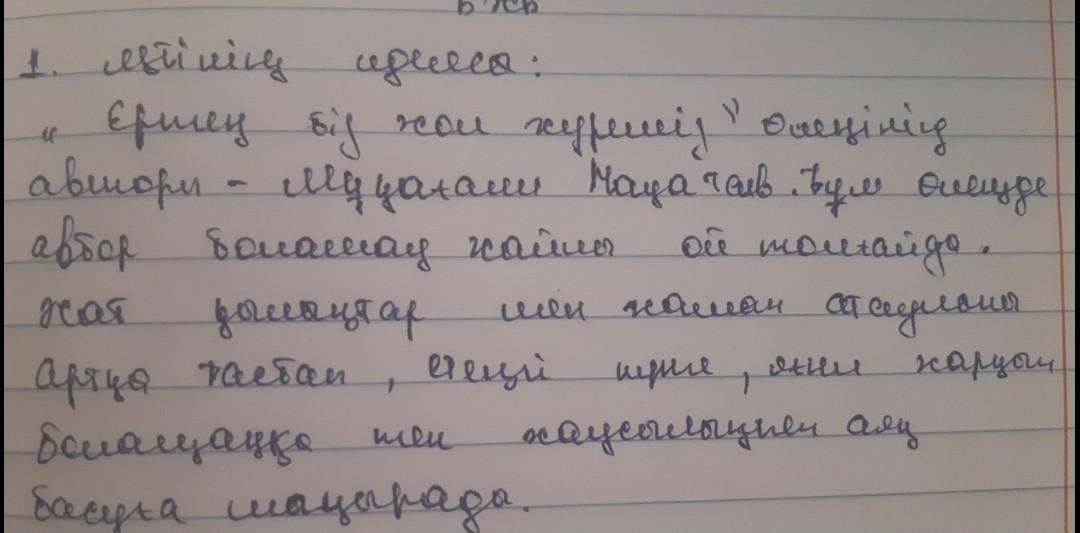 БЖБ
1. Мәтіннің идеясы:
" Ертең біз жол жүреміз" өлеңінің
авторы - Мұқағали Мақатаев. Бұл өлеңде
автор болашақ жайлы ой толғайды.
жат қылықтар мен жаман
артқа тастап, ілгері, яғни жарқын
болашаққа мен жақсылықпен аяқ
басуға шақырады.